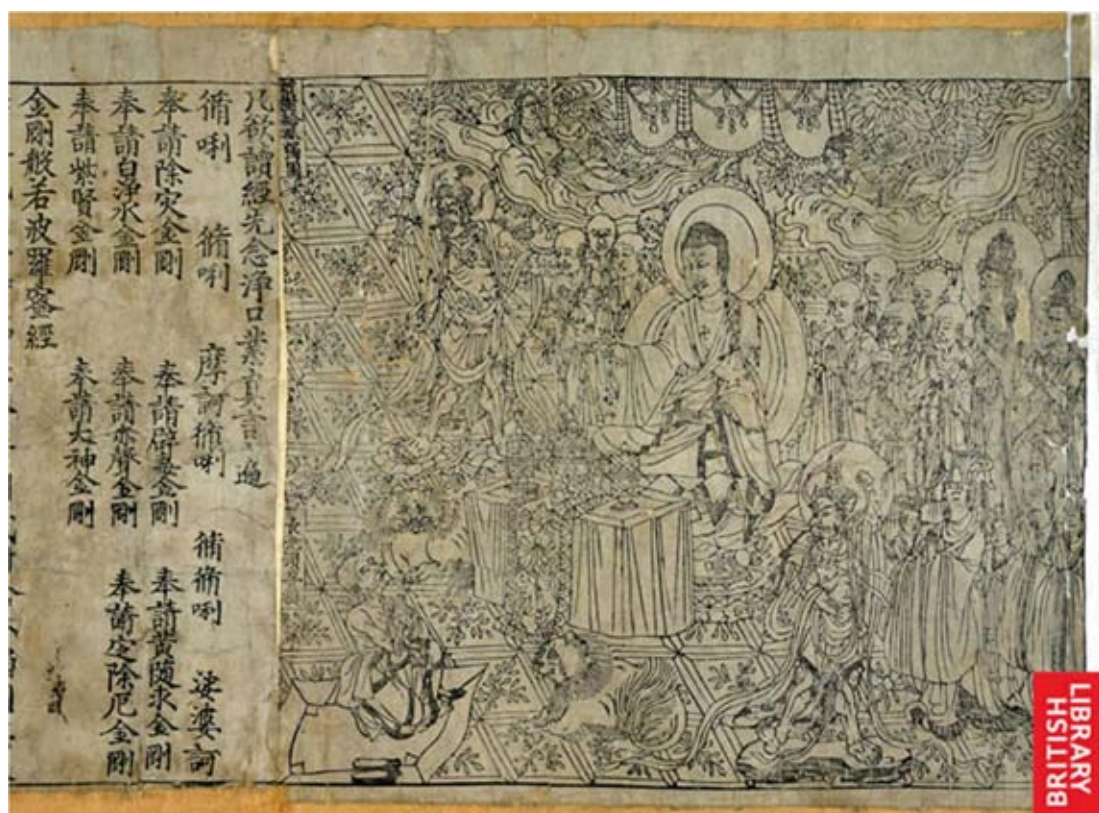 凡欲讀經先念淨口業真言遍
脩唎 脩唎 摩訶脩唎 脩脩唎 娑婆訶
奉請除灾金剛 奉請辟毒金剛 奉請黃隨求金剛
奉請白淨水金剛 奉請赤聲金剛 奉請定除厄金剛
奉請紫賢金剛 奉請大神金剛
金剛般若波羅蜜經
LIBRARY
BRITISH